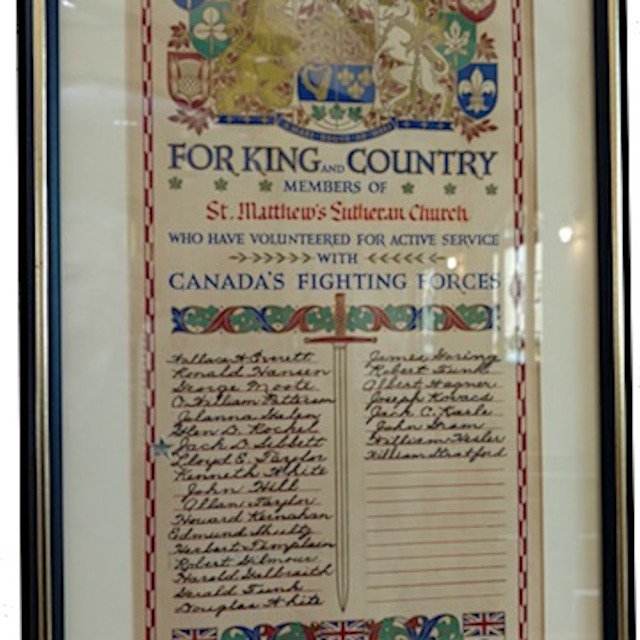 FOR KING AND COUNTRY
MEMBERS OF
St. Matthew's Lutheran Church
WHO HAVE VOLUNTEERED FOR ACTIVE SERVICE
WITH
CANADA'S FIGHTING FORCES
Wallace H. Everett
Ronald Hansen
George Moote
O. William Patterson
Julanna
Glen D. Rockel
Jack D. Sibbett
Lloyd E. Taylor
Kenneth White
John Hill
Allan Taylor
Howard Kernahan
Edmund Shultz
Herbert Templain
Robert Gilmour
Harold Galbraith
Gerald Funk
Douglas White
James Goring
Robert Funk
Albert Wagner
Joseph Kovacs
Jack C. Karle
John Gram
William Hesler
William Stratford